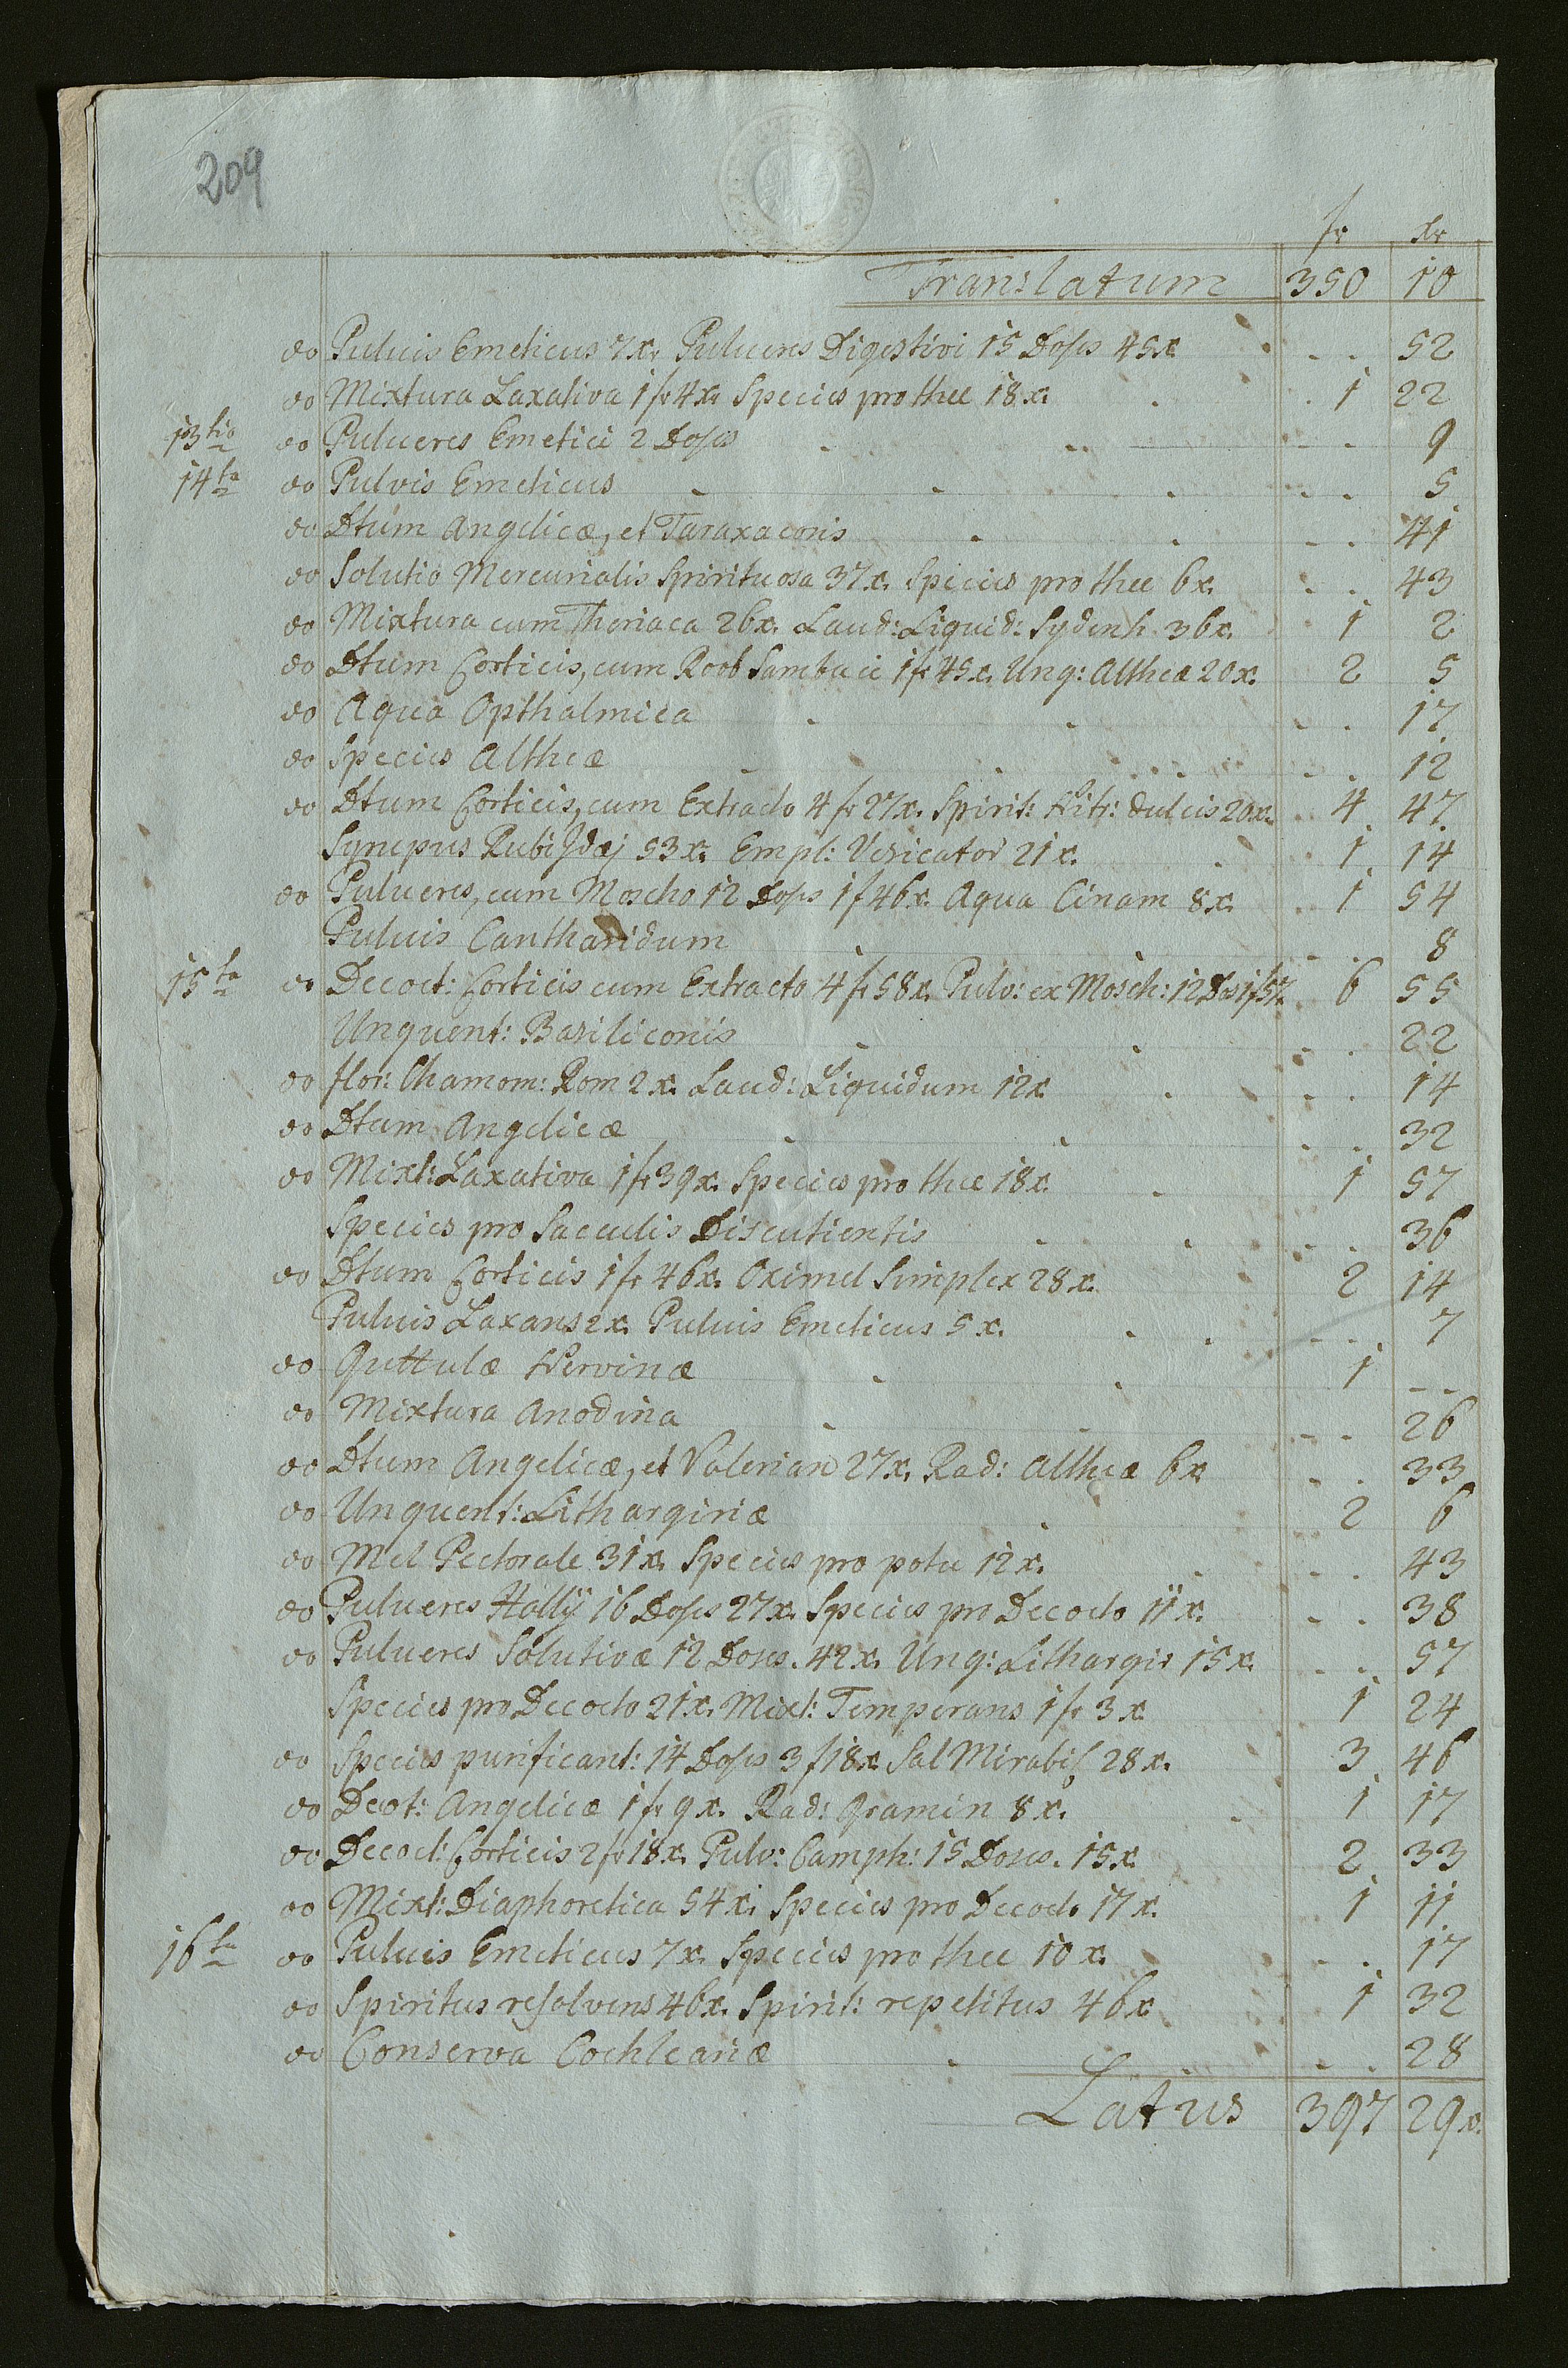 209
fr xr
Translatum 350 10
do Puluis Emeticus 7x. Pulueres Digestivi 15 Doses 45x - - 52
do Mixtura Laxativa 1 fr 4x. Species pro thee 18x. 1 22
13tio do Pulueres Emetici 2 Doses - - 9
14ta do Pulvis Emeticus - - 5
do Dtum Angelicæ, et Taraxaconis - - 41
do Solutio Mercurialis Spirituosa 37x. Species pro thee 6x. - - 43
do Mixtura cum Theriaca 26x. Laud: Liquid: Sydenh. 36x. 1 2
do Dtum Corticis, cum Roob Sambuci 1 fr 45x. Ung: Altheæ 20x. 2 5
do Aqua Opthalmica - - 17
do Species Altheæ - - 12
do Dtum Corticis, cum Extracto 4 fr 27x. Spirit: Nitr: dulcis 20x. 4 47
Syrupus Rubi Idæj 53x. Empl: Vesicator 21x. 1 14
do Pulueres, cum Moscho 12 Doses 1 f 46x. Aqua Cinam 8x. 1 54
Puluis Cantharidum - - 8
15ta do Decoct: Corticis cum Extracto 4 fr 58x. Pulv: ex Mosch: 12 Dos 1 f 57 6 55
Unguent: Basiliconis - - 22
do flor: Chamom: Rom 2x. Laud: Liquidum 12x - - 14
do Dtum Angelicæ - - 32
do Mixt: Laxativa 1 fr 39x. Species pro thee 18x. 1 57
Species pro Sacculis Discutientis - - 36
do Dtum Corticis 1 fr 46x. Oximel Simplex 28x. 2 14
Puluis Laxans 2x. Puluis Emeticus 5x. - - 7
do Guttulæ Nervinæ 1 - -
do Mixtura Anodina - - 26
do Dtum Angelicæ, et Valerian 27x. Rad: Altheæ 6x - - 33
do Unguent: Lithargiriæ 2 6
do Mel Pectorale 31x. Species pro potu 12x. - - 43
do Pulueres Hallÿ 16 Doses 27x. Species pro Decocto 11x. - - 38
do Pulueres Solutivæ 12 Doses. 42x. Ung: Lithargir 15x. - - 57
Species pro Decocto 21x. Mixt: Temperans 1 fr 3x 1 24
do Species purificant: 14 Doses 3 f 18x. Sal Mirabil 28x. 3 46
do Dect: Angelicæ 1 fr 9x. Rad: Gramin 8x. 1 17
do Decoct: Corticis 2 fr 18x. Pulv: Camph: 15 Doses. 15x. 2 33
do Mixt: Diaphoretica 54x. Species pro Decocto 17x. 1 11
16ta do Puluis Emeticus 7x. Species pro thee 10x. - - 17
do Spiritus resolvens 46x. Spirit: repetitus 46x 1 32
do Conserva Cochleariæ - - 28
Latus 397 29x.